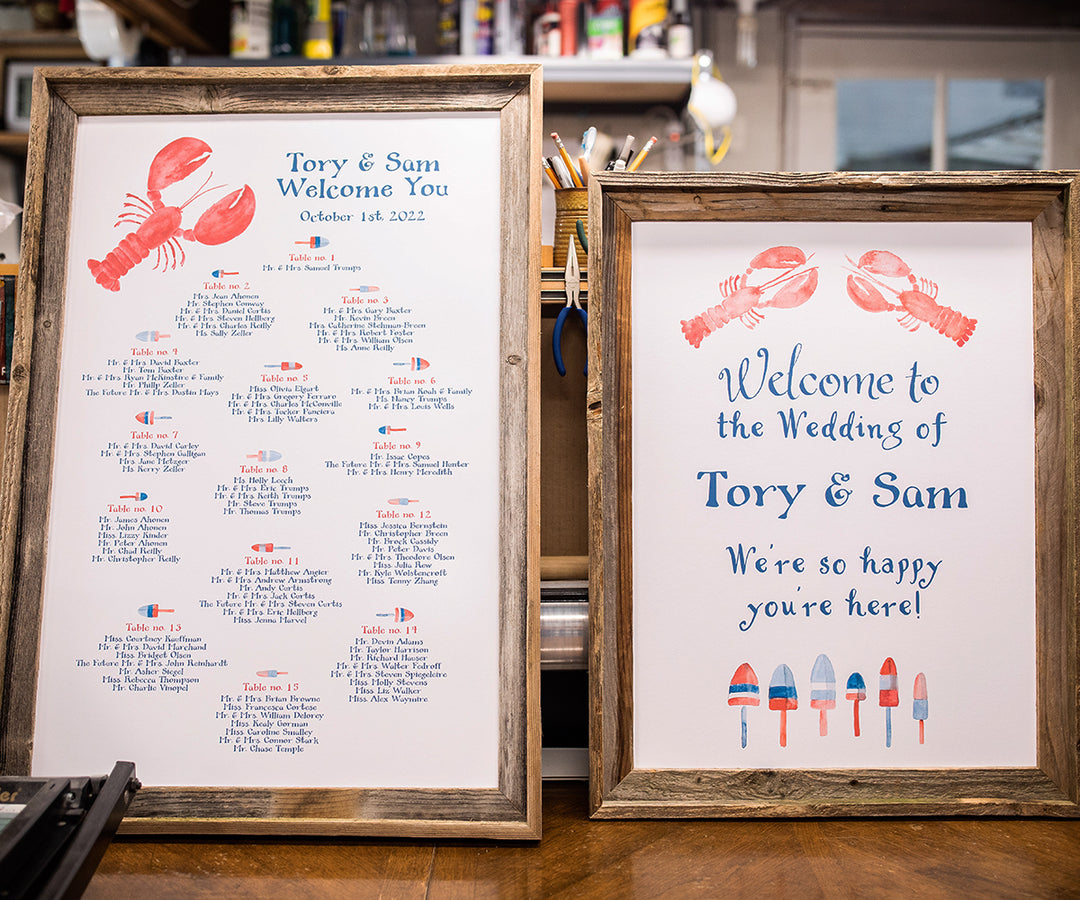 Tory & Sam
Welcome You
October 1st, 2022
Table no. 1
Mr. & Mrs. Samuel Trumps
Table no. 2
Mrs. Jean Ahonen
Mr. Stephen Conway
Mr. & Mrs. Daniel Curtis
Mr. & Mrs. Steven Hellberg
Mr. & Mrs. Charles Reilly
Ms. Sally Zeller
Table no. 3
Mr. & Mrs. Gary Baxter
Mr. Kevin Breen
Mrs. Catherine Stehman-Breen
Mr. & Mrs. Robert Foster
Mr. & Mrs. William Olsen
Ms. Anne Reilly
Table no. 4
Mr. & Mrs. David Baxter
Mr. Tom Baxter
Mr. & Mrs. Ryan McKinstire & Family
Mr. Philip Zeller
The Future Mr. & Mrs. Dustin Mays
Table no. 5
Miss Olivia Elgart
Mr. & Mrs. Gregory Ferraro
Mr. & Mrs. Charles McConville
Mr. & Mrs. Tucker Panciera
Mrs. Lilly Walters
Table no. 6
Mr. & Mrs. Brian Koah & Family
Ms. Nancy Trumps
Mr. & Mrs. Louis Wells
Table no. 7
Mr. & Mrs. David Carley
Mr. & Mrs. Stephen Galligan
Mrs. Jane Metzger
Ms. Kerry Zeller
Table no. 8
Ms. Holly Leech
Mr. & Mrs. Eric Trumps
Mr. & Mrs. Keith Trumps
Mr. Steve Trumps
Mr. Thomas Trumps
Table no. 9
Mr. Issac Copes
The Future Mr. & Mrs. Samuel Hunter
Mr. & Mrs. Henry Meredith
Table no. 10
Mr. James Ahonen
Mr. John Ahonen
Miss. Lizzy Kinder
Mr. Peter Ahonen
Mr. Chad Reilly
Mr. Christopher Reilly
Table no. 11
Mr. & Mrs. Matthew Angier
Mr. & Mrs. Andrew Armstrong
Mr. Andy Curtis
Mr. & Mrs. Jack Curtis
The Future Mr. & Mrs. Steven Curtis
Mr. & Mrs. Eric Hellberg
Miss. Jenna Marvel
Table no. 12
Miss Jessica Bernstein
Mr. Christopher Breen
Mr. Brock Cassidy
Mr. Peter Davis
Mr. & Mrs. Theodore Olsen
Miss. Julia Row
Mr. Kyle Wolstencroft
Miss Tenny Zhang
Table no. 13
Miss. Courtney Kauffman
Mr. & Mrs. David Marchand
Miss. Bridget Olsen
The Future Mr. & Mrs. John Reinhardt
Mr. Asher Siegel
Miss. Rebecca Thompson
Mr. Charlie Vinopel
Table no. 14
Mr. Devin Adams
Mr. Taylor Harrison
Mr. Richard Hauser
Mr. & Mrs. Walter Fedroff
Mr. & Mrs. Steven Spigeleire
Miss. Molly Stevens
Miss. Liz Walker
Miss. Alex Waymire
Table no. 15
Mr. & Mrs. Brian Browne
Miss. Francesca Cortese
Mr. & Mrs. William Delorey
Miss. Kealy Gorman
Miss. Caroline Smalley
Mr. & Mrs. Connor Stark
Mr. Chase Temple
Welcome to
the Wedding of
Tory & Sam
We're so happy
you're here!